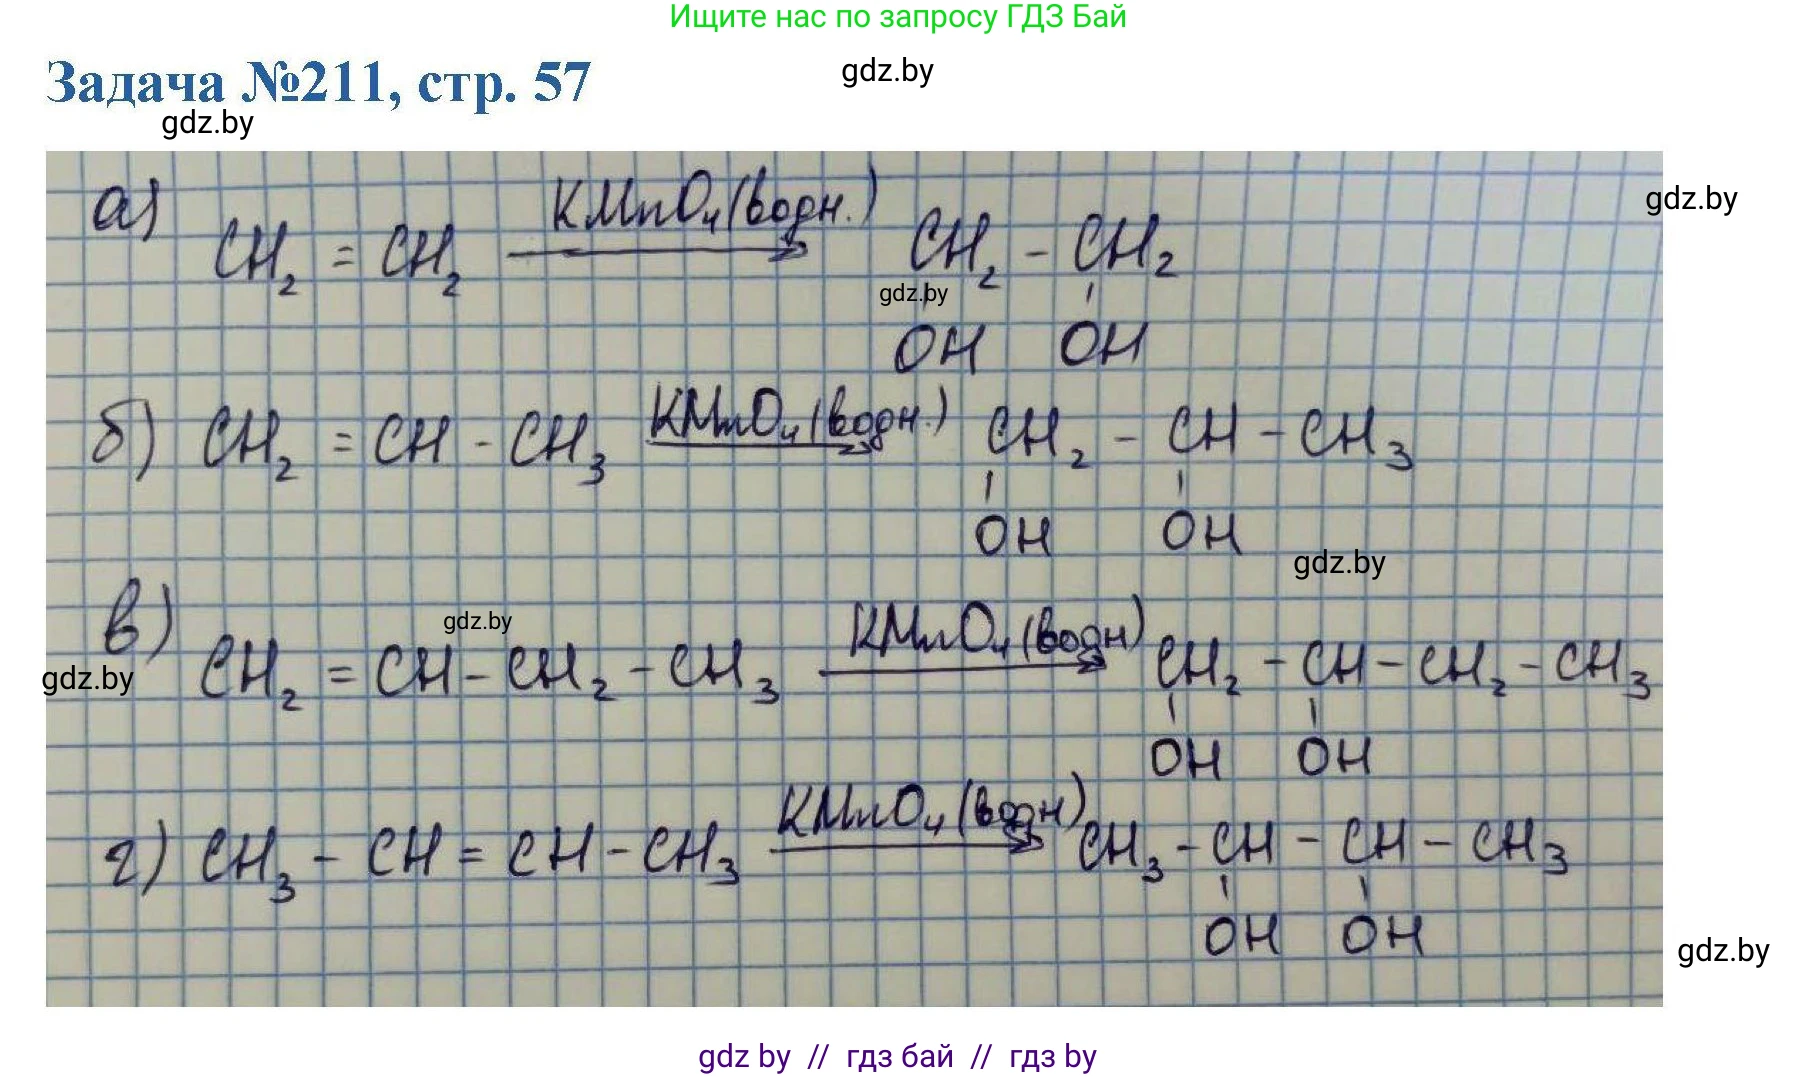 Ищите нас по запросу ГДЗ Бай
Задача №211, стр. 57
gdz.by
gdz.by
а) CH₂ = CH₂ KMnO₄ (водн.) → CH₂ - CH₂
gdz.by
gdz.by
OH OH
б) CH₂ = CH - CH₃ KMnO₄ (водн.) → CH₂ - CH - CH₃
OH OH
gdz.by
gdz.by
в) CH₂ = CH - CH₂ - CH₃ KMnO₄ (водн) → CH₂ - CH - CH₂ - CH₃
gdz.by
OH OH
г) CH₃ - CH = CH - CH₃ KMnO₄ (водн) → CH₃ - CH - CH - CH₃
OH OH
gdz.by
gdz by // гдз бай // гдз by